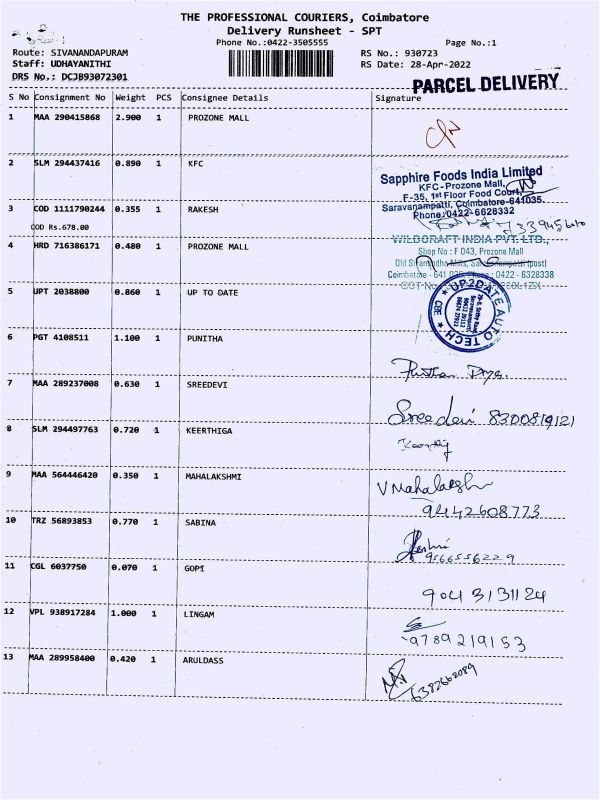 THE PROFESSIONAL COURIERS, Coimbatore
Delivery Runsheet - SPT
Phone No.:0422-3505555
Page No.:1
Route: SIVANANDAPURAM
RS No.: 930723
Staff: UDHAYANITHI
RS Date: 28-Apr-2022
DRS No.: DCJB93072301
PARCEL DELIVERY
S No Consignment No Weight PCS Consignee Details Signature
1 MAA 290415868 2.900 1 PROZONE MALL
2 SLM 294437416 0.890 1 KFC
Sapphire Foods India Limited
KFC-Prozone Mall,
F-35, 1st Floor Food Court,
Saravanampatti, Coimbatore-641035.
Phone:0422-6628332
3 COD 1111790244 0.355 1 RAKESH
COD Rs.678.00
4 HRD 716386171 0.480 1 PROZONE MALL
WILDCRAFT INDIA PVT. LTD.,
Shop No : F 043, Prozone Mall
Old Sivanandha Mills, (post)
Coimbatore - 641 035, Phone : 0422 - 6328338
5 UPT 2038800 0.860 1 UP TO DATE
UP2DATE AUTO TECH
CBE
6 PGT 4108511 1.100 1 PUNITHA
7 MAA 289237008 0.630 1 SREEDEVI
Sreedevi 8300819121
8 SLM 294497763 0.720 1 KEERTHIGA
9 MAA 564446420 0.350 1 MAHALAKSHMI
V Mahalakshmi
9442608773
10 TRZ 56893853 0.770 1 SABINA
9566556229
11 CGL 6037750 0.070 1 GOPI
9043131124
12 VPL 938917284 1.000 1 LINGAM
9789219153
13 MAA 289958400 0.420 1 ARULDASS
6382662089